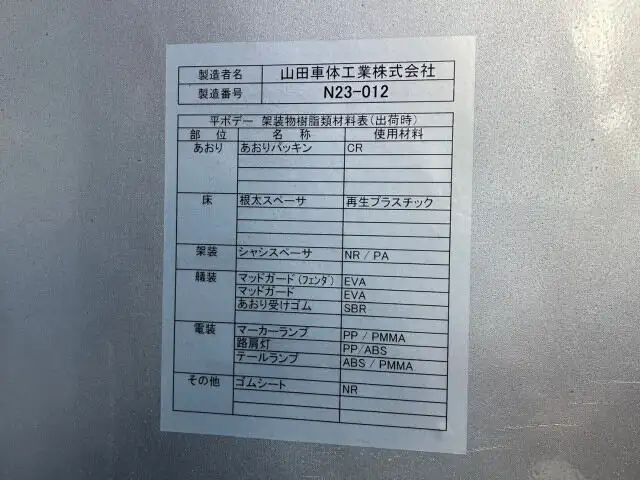 製造者名 山田車体工業株式会社
製造番号 N23-012
平ボデー 架装物樹脂類材料表(出荷時)
部 位 名 称 使用材料
あおり あおりパッキン CR
床 根太スペーサ 再生プラスチック
架装 シャシスペーサ NR / PA
艤装 マッドガード(フェンダ) EVA
マッドガード EVA
あおり受けゴム SBR
電装 マーカーランプ PP / PMMA
路肩灯 PP/ABS
テールランプ ABS / PMMA
その他 ゴムシート NR